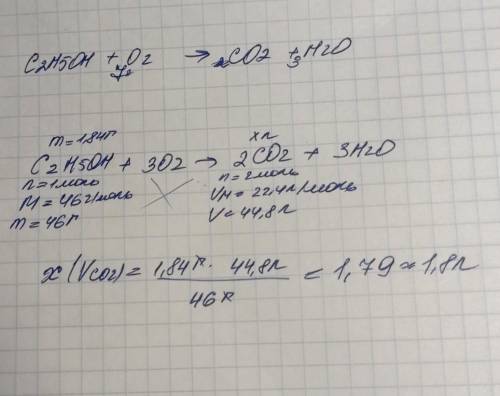 C2H5OH + 7O2 → 2CO2 + 3H2O
m = 1,84г x л
C2H5OH + 3O2 → 2CO2 + 3H2O
n = 1моль n = 2моль
M = 46г/моль VM = 22,4л/моль
m = 46г V = 44,8л
x (VCO2) = 1,84г · 44,8л / 46г = 1,79 ≈ 1,8л